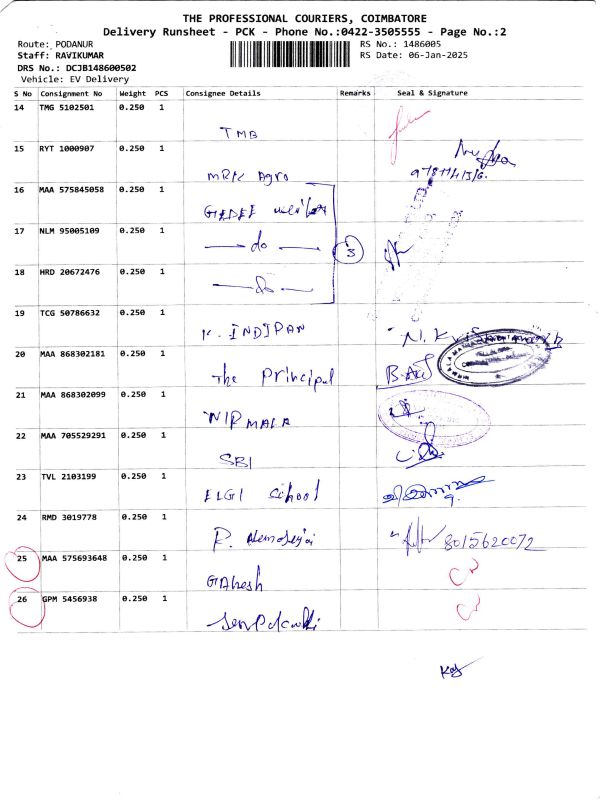 THE PROFESSIONAL COURIERS, COIMBATORE
Delivery Runsheet - PCK - Phone No.:0422-3505555 - Page No.:2
Route: PODANUR RS No.: 1486005
Staff: RAVIKUMAR RS Date: 06-Jan-2025
DRS No.: DCJB148600502
Vehicle: EV Delivery
S No Consignment No Weight PCS Consignee Details Remarks Seal & Signature
14 TMG 5102501 0.250 1
TMB
15 RYT 1000907 0.250 1
MRK Agro
16 MAA 575845058 0.250 1
GEDEE
17 NLM 95005109 0.250 1
do 3
18 HRD 20672476 0.250 1
do
19 TCG 50786632 0.250 1
K. INDIRAN
20 MAA 868302181 0.250 1
The Principal
21 MAA 868302099 0.250 1
NIRMALA
22 MAA 705529291 0.250 1
SBI
23 TVL 2103199 0.250 1
ELGI School
24 RMD 3019778 0.250 1
P. 8015620072
25 MAA 575693648 0.250 1
26 GPM 5456938 0.250 1